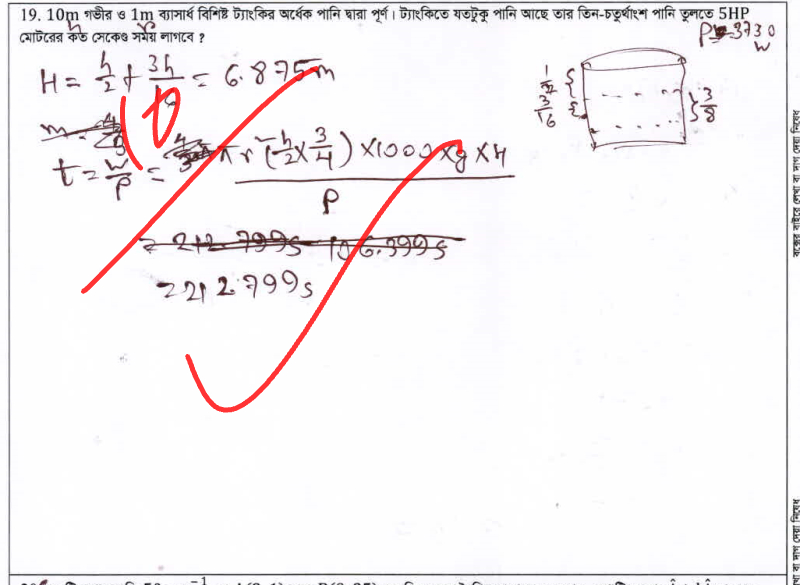 19. 10m গভীর ও 1m ব্যাসার্ধ বিশিষ্ট ট্যাংকির অর্ধেক পানি দ্বারা পূর্ণ। ট্যাংকিতে যতটুকু পানি আছে তার তিন-চতুর্থাংশ পানি তুলতে 5HP
মোটরের কত সেকেন্ড সময় লাগবে ?
h r
P = 3730 W
H = h/2 + 3h/16 = 6.875m
1/2
3/16
3/8
t = W/P = πr²(h/2 × 3/4) × 1000 × g × H / P
= 212.799s 106.399s
= 212.799s
বক্সের বাইরে লেখা বা দাগ দেয়া নিষেধ
বা দাগ দেয়া নিষেধ